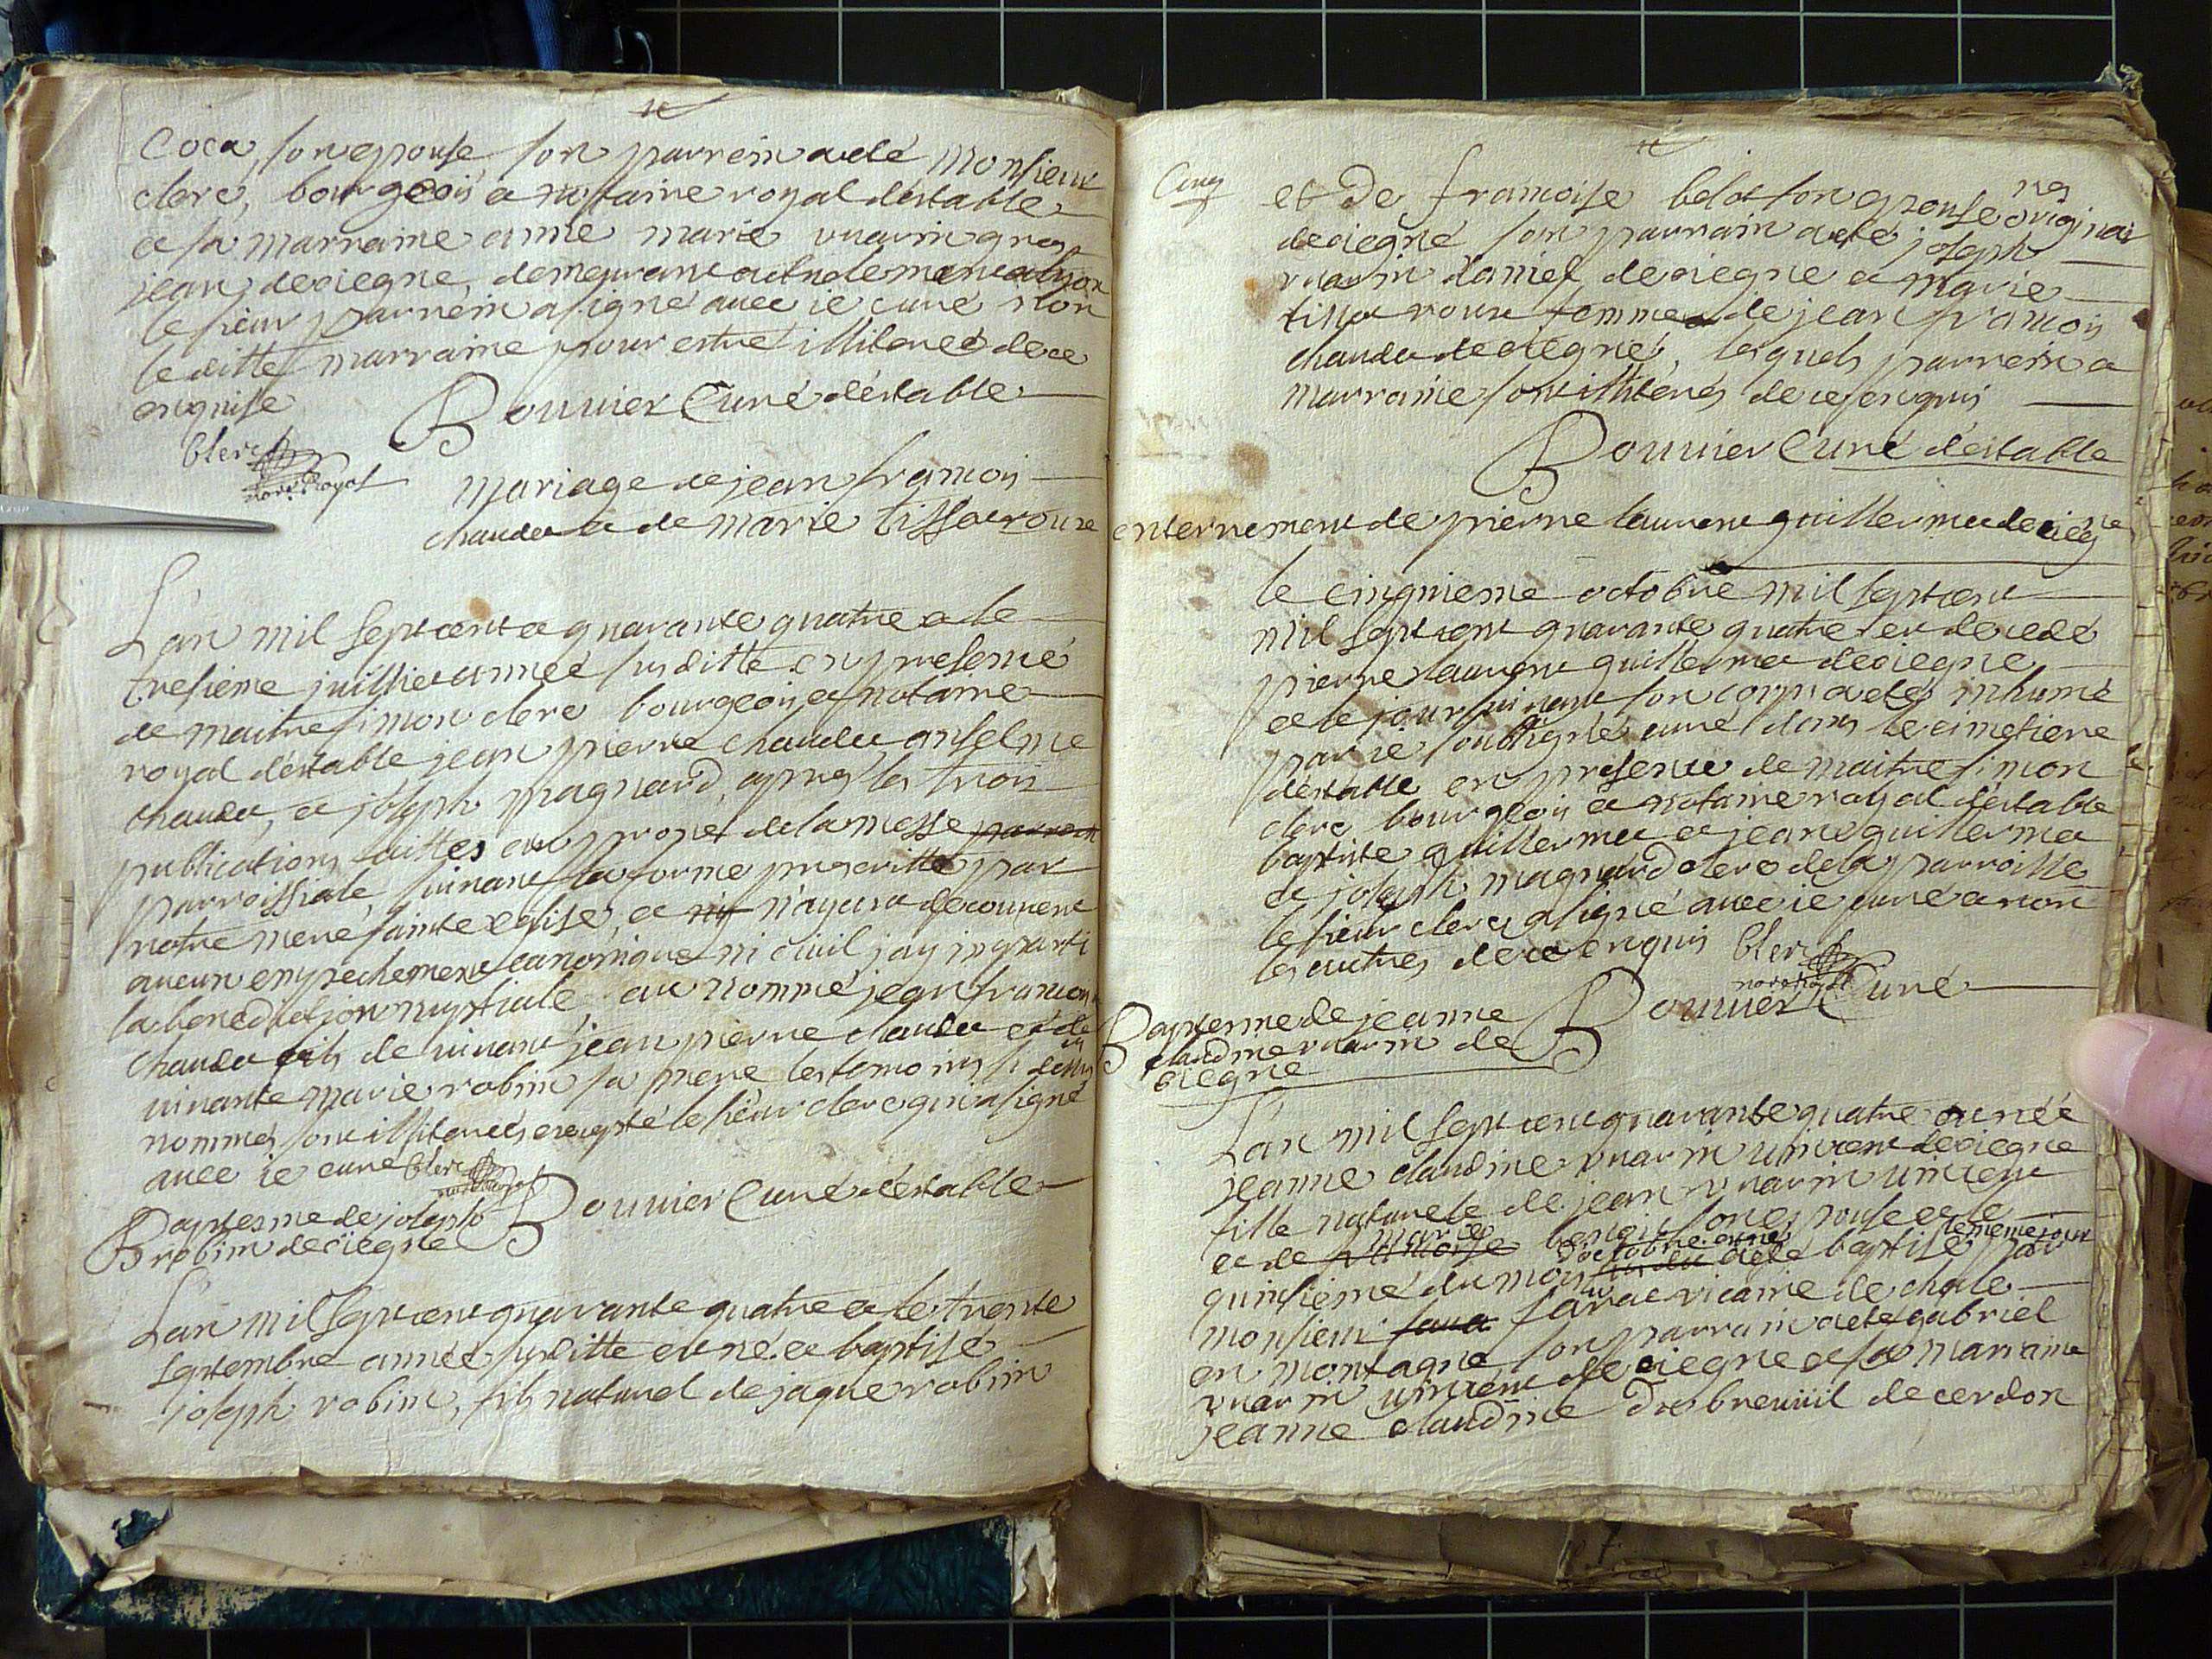 coca, son epouse son parrein a eté Monsieur
clerc, bourgeois et notaire royal d'estable
et sa marraine anne marie vuarin gros
jean de ciegne, demeurant
le sieur parrein a signé avec ie curé non
le ditte marraine pour estre illiteree de ce
enquise
Bouuier Curé d'estable
Clerc
nore Royal
Mariage de jean francois
chaudet et de Marie tissot roux
L'an mil sept cent et quarante quatre et le
tresieme juillet année susditte en presence
de maitre simon clerc bourgeois et notaire
royal d'estable jean pierre chaudet anselme
chaudet, et joseph magnard, apres les trois
publications faittes au prone de la messe
parroissiale, suivant la forme prescritte par
notre mere sainte eglise, et n'ayant decouvert
aucun empechement canonique ni civil j'ay imparti
la benediction nuptiale, au nommé jean francois
chaudet fils de vivant jean pierre chaudet et de
vivante marie robin sa mere les temoins si dessus
nommés sont illiterés excepté le sieur clerc qui a signé
avec ie curé Clerc
nore Royal
Bouuier Curé d'estable
Baptesme de joseph
robin de ciegne
L'an mil sept cent quarante quatre et le trente
septembre année susditte est né et baptisé
joseph robin, fils naturel de jaque robin
Cinq
et De francoise belot son epouse
de ciegne son parrain a eté joseph
vuarin daniel de ciegne et marie
tissot roux femme de jean francois
chaudet de ciegne, lesquels parrein et
marraine sont illiterés de ce enquis
Bouuier Curé d'estable
enterrement de pierre laurent guillermet de ciegne
le cinquieme octobre mil sept cent
mil sept cent quarante quatre est decedé
pierre laurent guillermet de ciegne
et le jour suivant son corps a eté inhumé
par ie soubsigné curé dans le cimetiere
d'estable en presence de maitre simon
clerc bourgeois et notaire royal d'estable
baptiste guillermet et jean guillermet
et joseph magnard clerc de la parroisse
le sieur clerc a signé avec ie curé et non
les autres de ce enquis Clerc
nore Royal
Bouuier Curé
Baptesme de jeanne
claudine vuarin de
ciegne
L'an mil sept cent quarante quatre est née
jeanne claudine vuarin vincent de ciegne
fille naturele de jean vuarin vincent
et de francoise marie benoit son epouse et le
quinsieme du mois d'octobre a eté baptisé le meme jour par
monsieur favre vicaire de chale
en montagne son parrain a eté gabriel
vuarin vincent de ciegne et sa marraine
jeanne claudine Dubreuil de cerdon